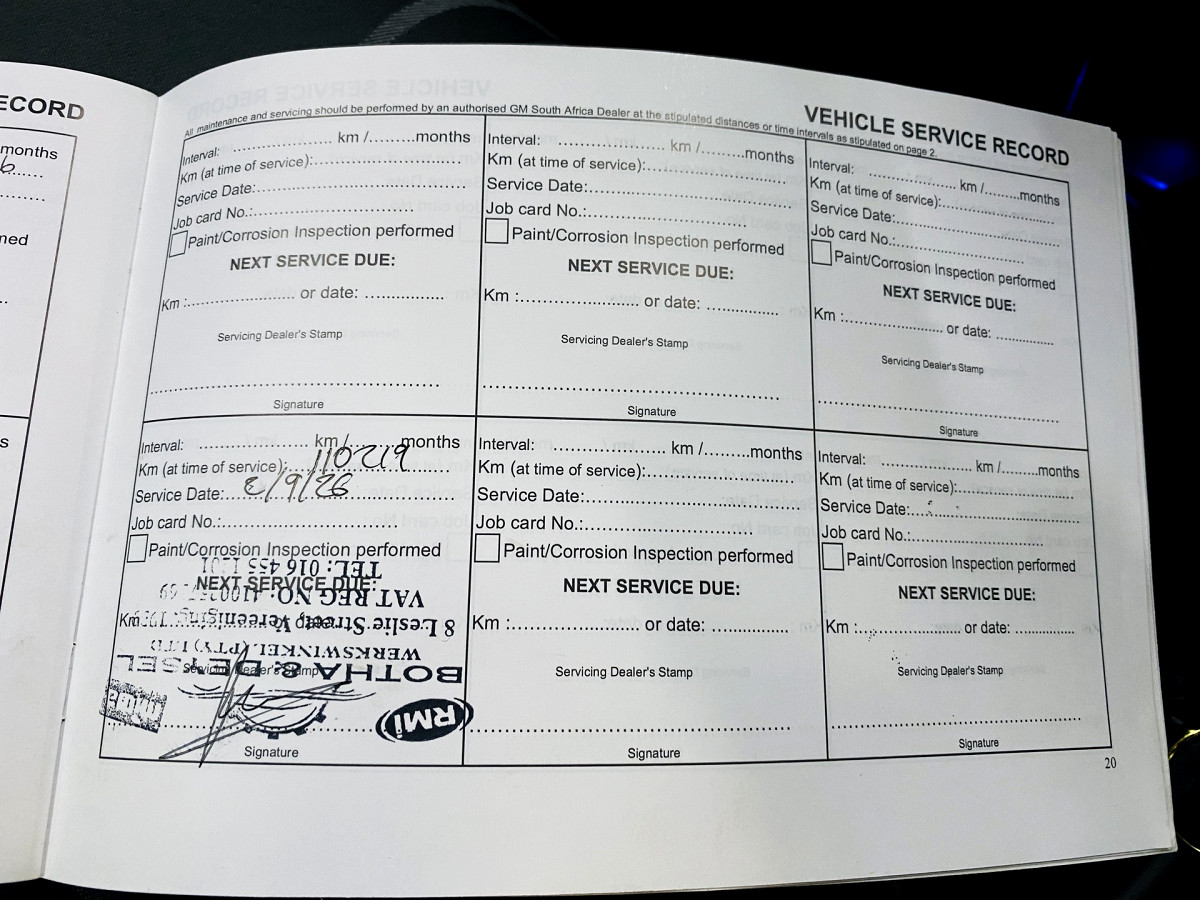 ECORD
months
ned
s
VEHICLE SERVICE RECORD
All maintenance and servicing should be performed by an authorised GM South Africa Dealer at the stipulated distances or time intervals as stipulated on page 2.
Interval: ..................... km /.........months
Km (at time of service):..............................
Service Date:..............................
Job card No.:..............................
Paint/Corrosion Inspection performed
NEXT SERVICE DUE:
Km :..................... or date: ................
Servicing Dealer's Stamp
Signature
Interval: ..................... km /.........months
Km (at time of service):..............................
Service Date:..............................
Job card No.:..............................
Paint/Corrosion Inspection performed
NEXT SERVICE DUE:
Km :..................... or date: ................
Servicing Dealer's Stamp
Signature
Interval: ..................... km /.........months
Km (at time of service):..............................
Service Date:..............................
Job card No.:..............................
Paint/Corrosion Inspection performed
NEXT SERVICE DUE:
Km :..................... or date: ................
Servicing Dealer's Stamp
Signature
Interval: ..................... km /.........months
Km (at time of service): 110219
Service Date: 2/9/26
Job card No.:..............................
Paint/Corrosion Inspection performed
NEXT SERVICE DUE:
Km
Servicing Dealer's Stamp
Signature
RMi
BOTHA & DEYSSEL
WERKSWINKEL (PTY) LTD
8 Leslie Street, Vereeniging,
VAT REG NO.
TEL: 016 455
Interval: ..................... km /.........months
Km (at time of service):..............................
Service Date:..............................
Job card No.:..............................
Paint/Corrosion Inspection performed
NEXT SERVICE DUE:
Km :..................... or date: ................
Servicing Dealer's Stamp
Signature
Interval: ..................... km /.........months
Km (at time of service):..............................
Service Date:..............................
Job card No.:..............................
Paint/Corrosion Inspection performed
NEXT SERVICE DUE:
Km :..................... or date: ................
Servicing Dealer's Stamp
Signature
20